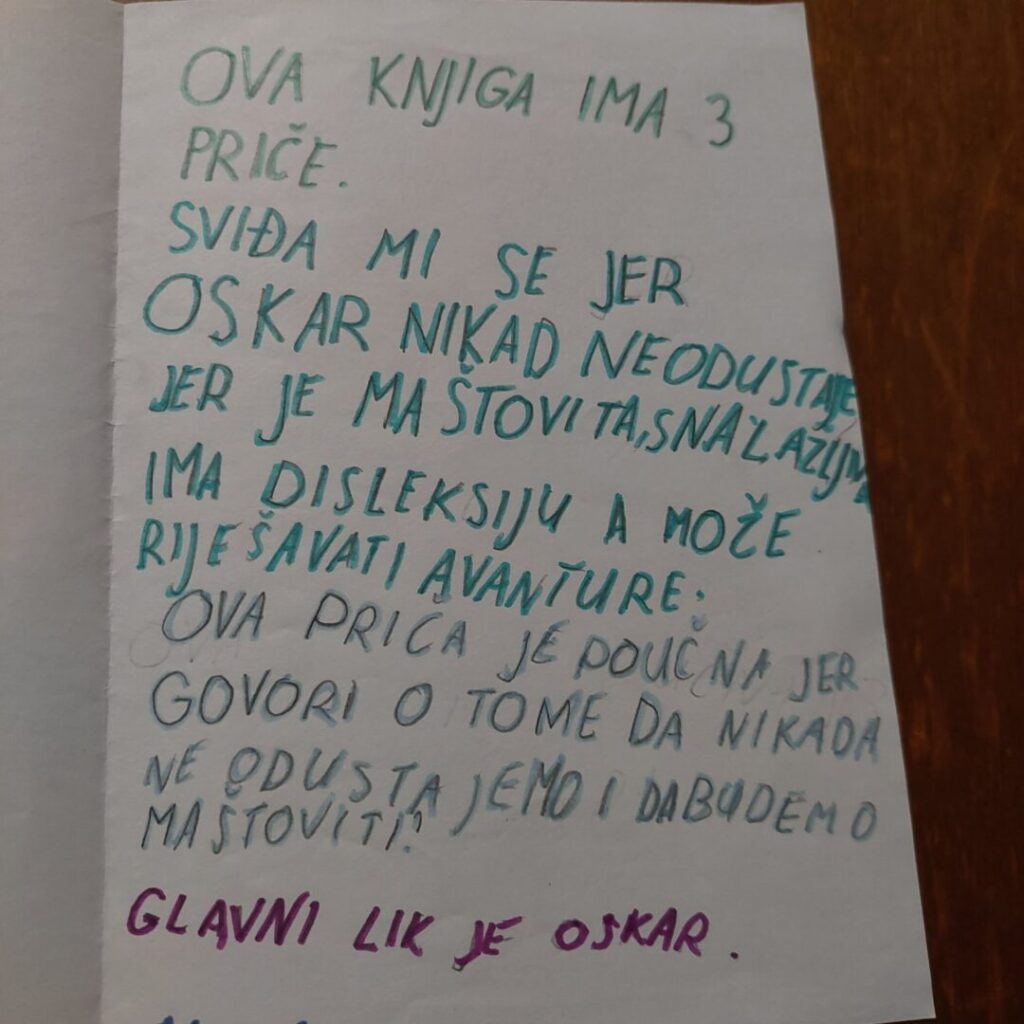 OVA KNJIGA IMA 3
PRIČE.
SVIĐA MI SE JER
OSKAR NIKAD NEODUSTAJE
JER JE MAŠTOVITA,SNALAZLJIVA
IMA DISLEKSIJU A MOŽE
RIJEŠAVATI AVANTURE.
OVA PRIČA JE POUČNA JER
GOVORI O TOME DA NIKADA
NE ODUSTAJEMO I DA BUDEMO
MAŠTOVITI!
GLAVNI LIK JE OSKAR.